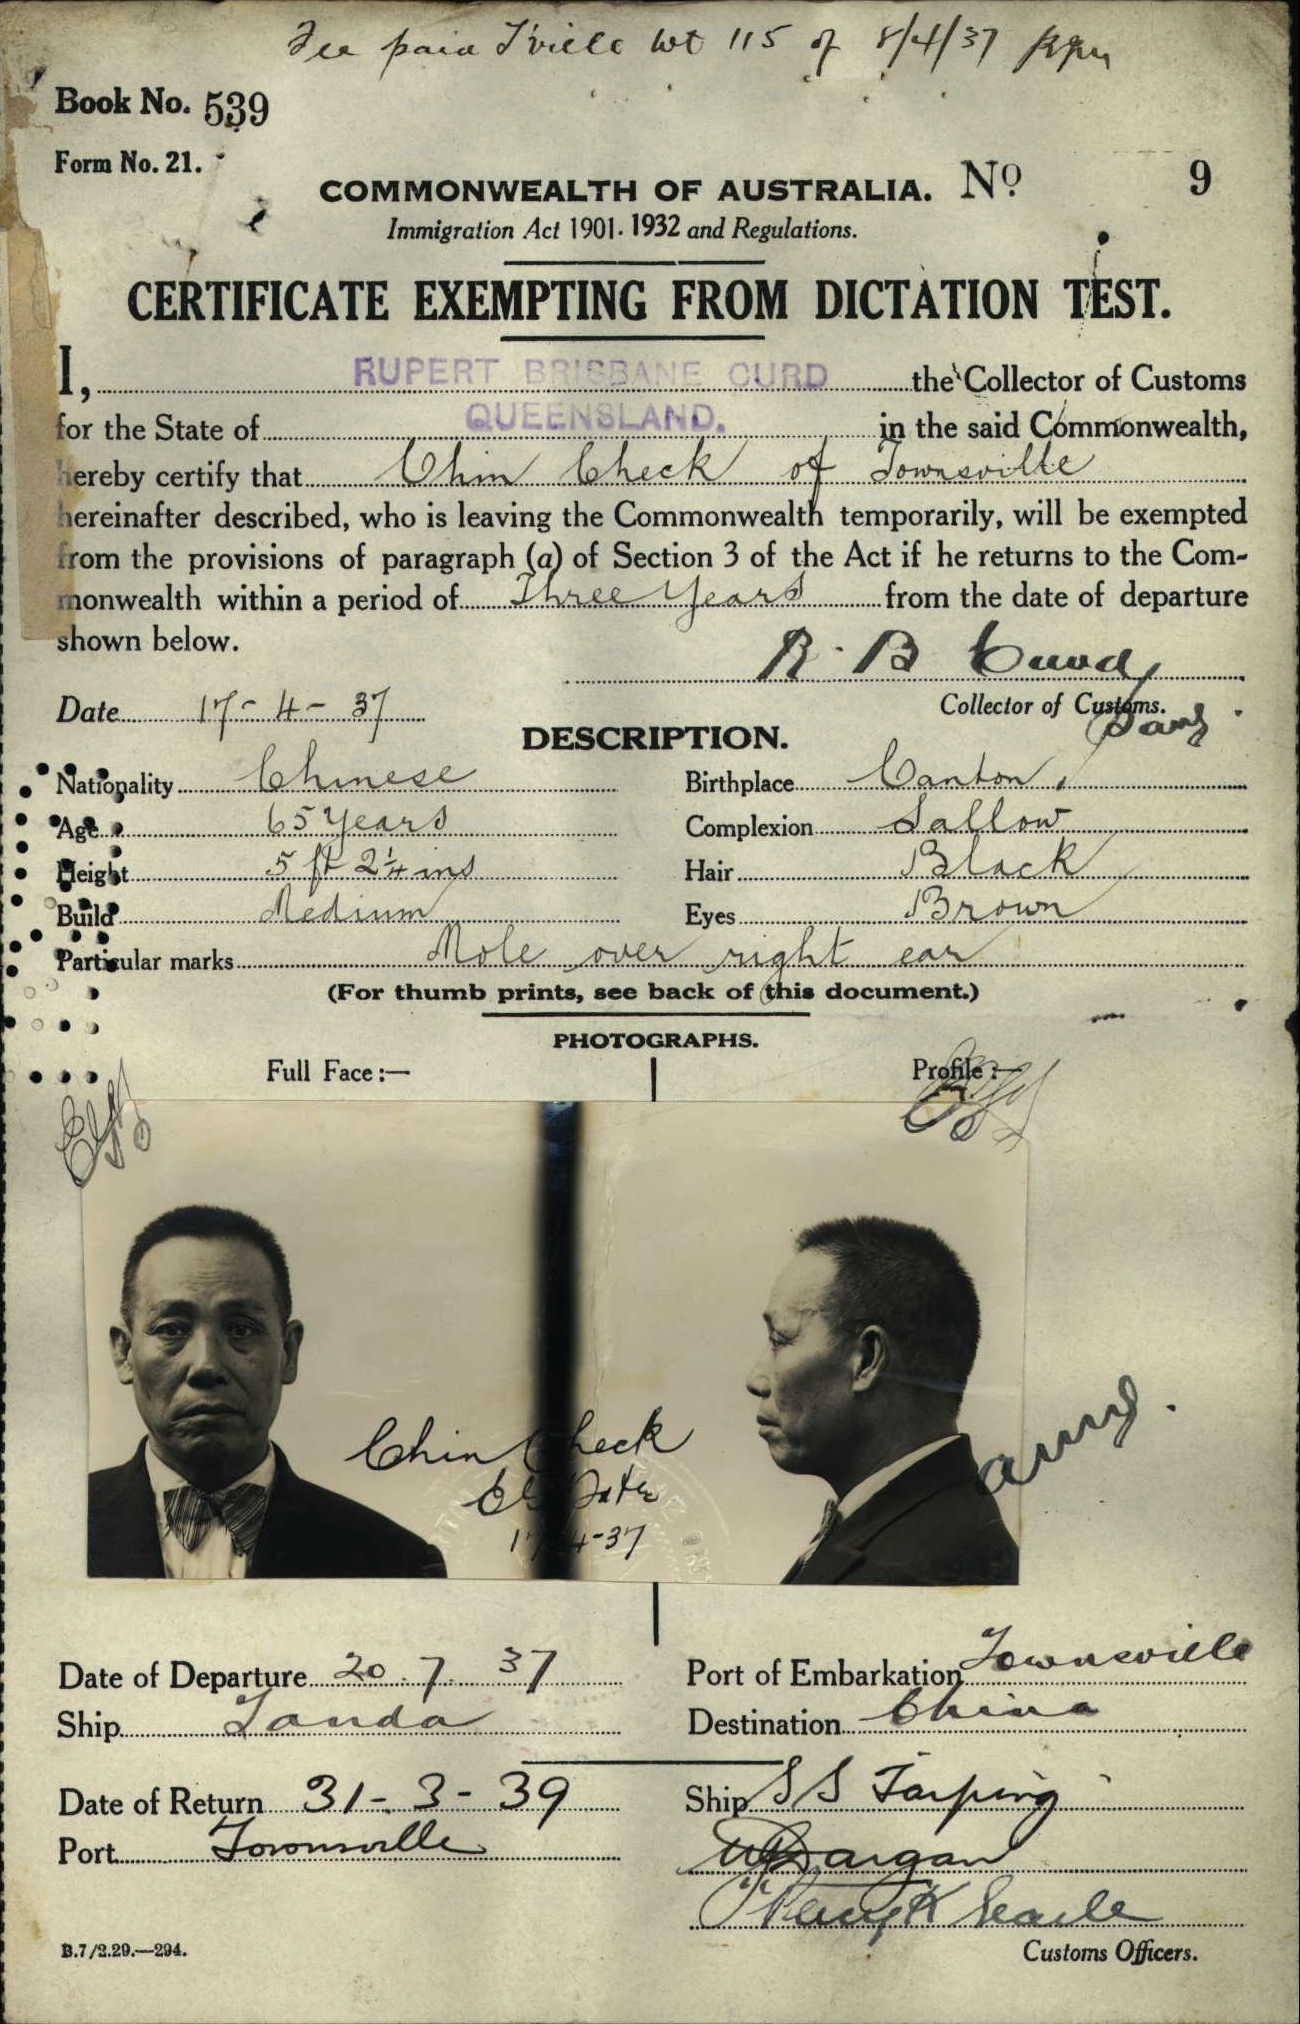 Fee paid T'ville Wt 115 of 8/4/37
Book No. 539
Form No. 21.
COMMONWEALTH OF AUSTRALIA. No. 9
Immigration Act 1901-1932 and Regulations.
CERTIFICATE EXEMPTING FROM DICTATION TEST.
I, RUPERT BRISBANE CURD the Collector of Customs
for the State of QUEENSLAND. in the said Commonwealth,
hereby certify that Chin Check of Townsville
hereinafter described, who is leaving the Commonwealth temporarily, will be exempted
from the provisions of paragraph (a) of Section 3 of the Act if he returns to the Com-
monwealth within a period of Three Years from the date of departure
shown below.
R. B. Curd
Date 17-4-37 Collector of Customs.
DESCRIPTION.
Nationality Chinese Birthplace Canton
Age 65 Years Complexion Sallow
Height 5 ft 2¼ ins Hair Black
Build Medium Eyes Brown
Particular marks Mole over right ear
(For thumb prints, see back of this document.)
PHOTOGRAPHS.
Full Face:— Profile:—
Chin Check
17-4-37
Date of Departure 20.7.37 Port of Embarkation Townsville
Ship Tanda Destination China
Date of Return 31-3-39 Ship SS Taiping
Port Townsville
Percy K Searle
Customs Officers.
B.7/2.29.—294.